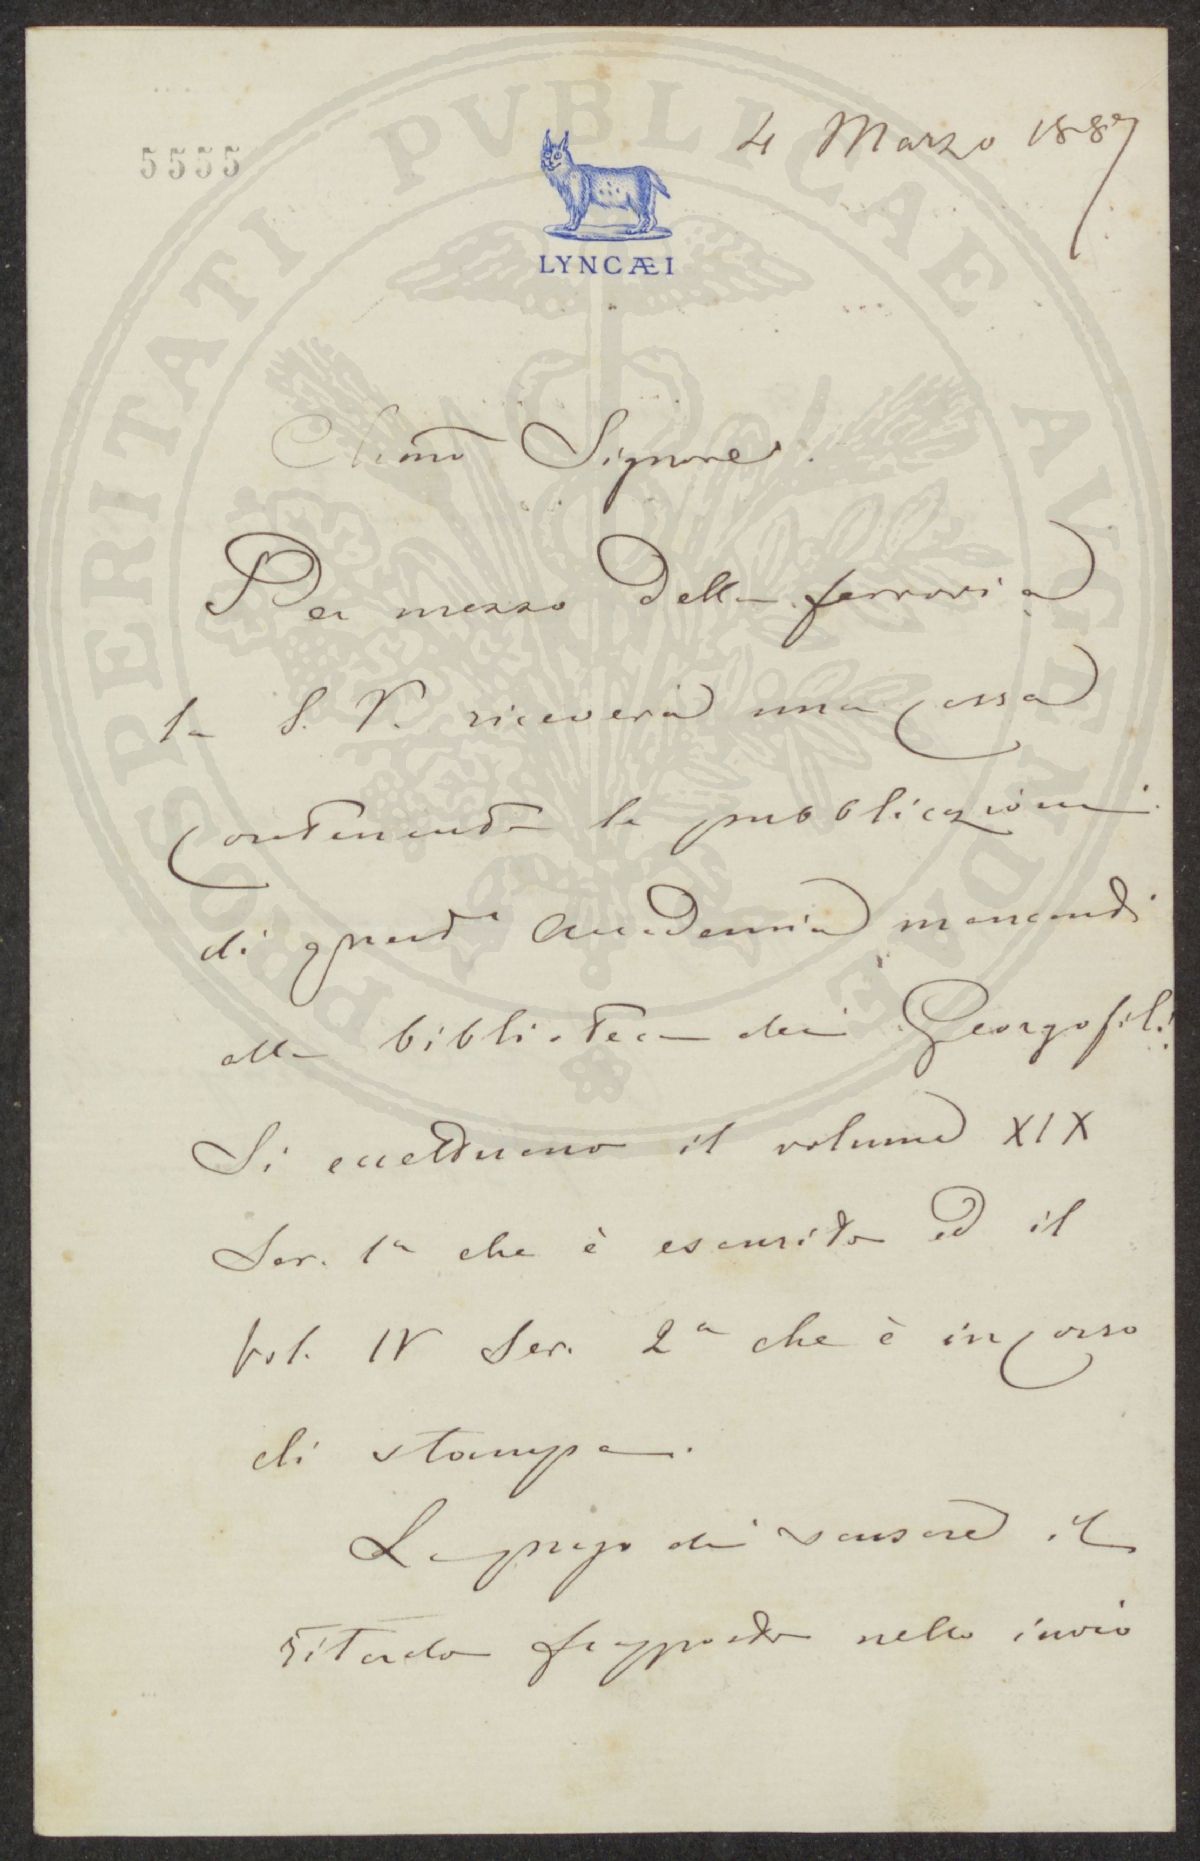 5555
4 Marzo 1887
LYNCÆI
PROSPERITATI PVBLICAE AVGENDAE
Chmo Signore
Per mezzo della ferrovia
la S. V. riceverà una cassa
contenente le pubblicazioni
di questa Accademia mancanti
alla biblioteca dei Georgofili.
Si eccettuano il volume XIX
Ser. 1a che è esaurito ed il
Vol. IV Ser. 2a che è in corso
di stampa.
La prego di scusare il
ritardo frapposto nello invio